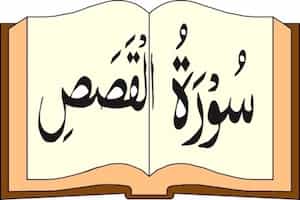 سُوْرَةُ الْقَصَصِ